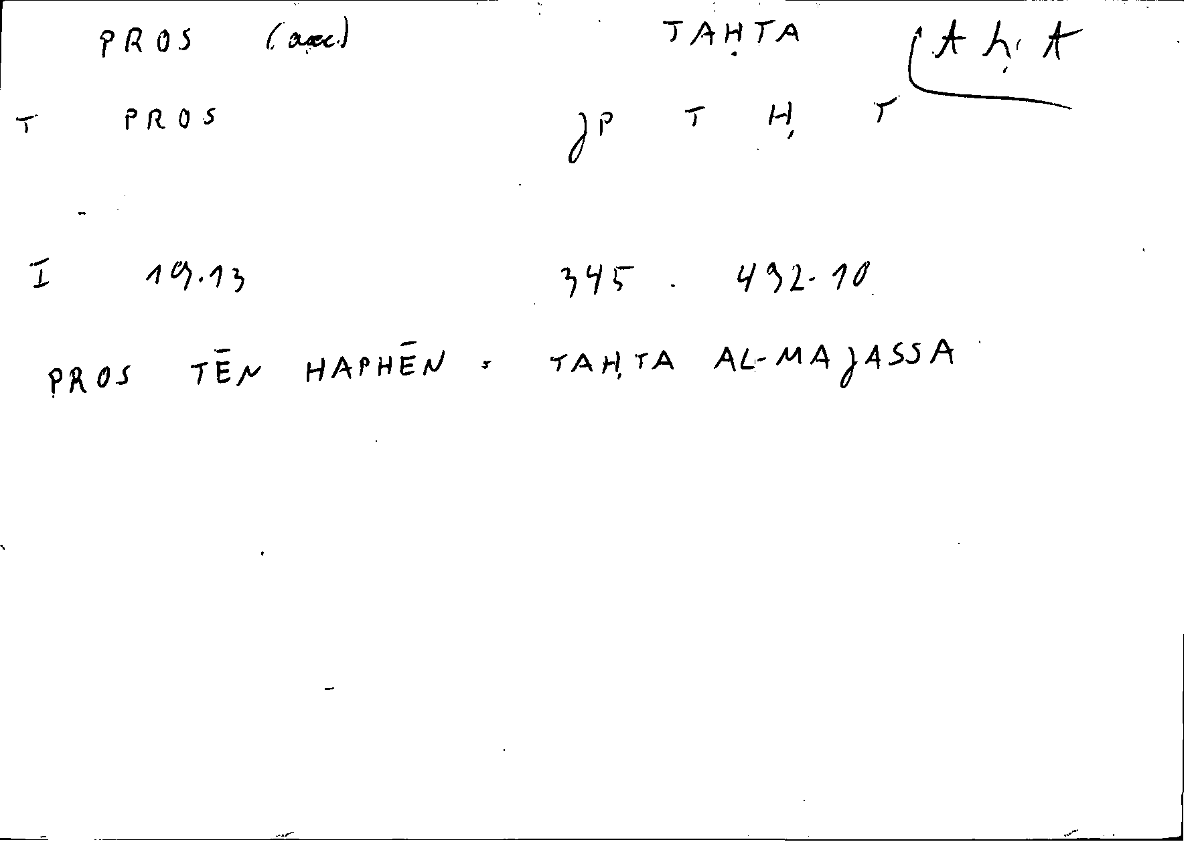 PROS (acc.) TAḤTA tAḥtA
T PROS JP T Ḥ T
I 19.13 345 . 492.10
PROS TĒN HAPHĒN = TAḤTA AL-MAJASSA